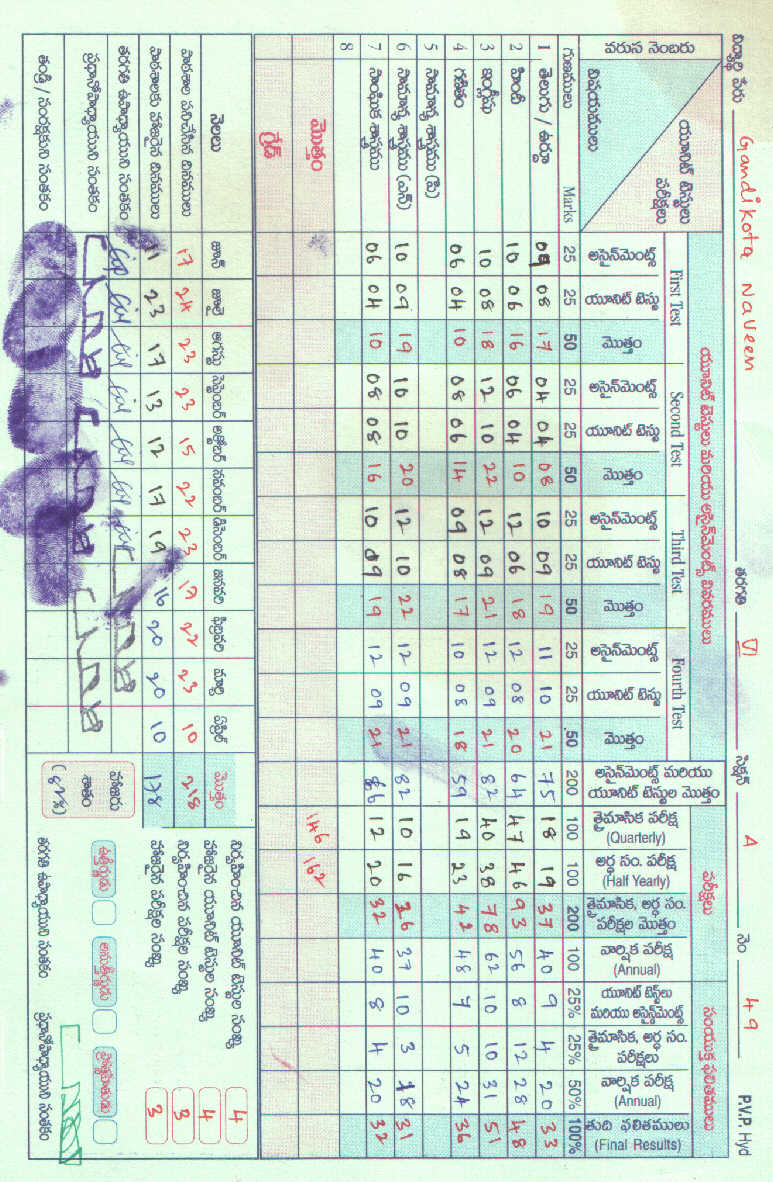 విద్యార్థి పేరు Gandikota Naveen తరగతి VI సెక్షన్ A నెం 49 P.V.P. Hyd
వరుస నెంబరు యూనిట్ టెస్టులు పరీక్షలు విషయములు యూనిట్ టెస్టులు మరియు అసైన్‌మెంట్స్ వివరములు పరీక్షలు సంయుక్త ఫలితములు
First Test Second Test Third Test Fourth Test
అసైన్‌మెంట్స్ యూనిట్ టెస్టు మొత్తం అసైన్‌మెంట్స్ యూనిట్ టెస్టు మొత్తం అసైన్‌మెంట్స్ యూనిట్ టెస్టు మొత్తం అసైన్‌మెంట్స్ యూనిట్ టెస్టు మొత్తం అసైన్‌మెంట్స్ మరియు యూనిట్ టెస్టుల మొత్తం త్రైమాసిక పరీక్ష (Quarterly) అర్ధ సం. పరీక్ష (Half Yearly) త్రైమాసిక, అర్ధ సం. పరీక్షల మొత్తం వార్షిక పరీక్ష (Annual) యూనిట్ టెస్ట్‌లు మరియు అసైన్‌మెంట్స్ త్రైమాసిక, అర్ధ సం. పరీక్షలు వార్షిక పరీక్ష (Annual) తుది ఫలితములు (Final Results)
గుణములు Marks 25 25 50 25 25 50 25 25 50 25 25 50 200 100 100 200 100 25% 25% 50% 100%
1 తెలుగు / ఉర్దూ 09 08 17 04 04 08 10 09 19 11 10 21 75 18 19 37 40 9 4 20 33
2 హిందీ 10 06 16 06 04 10 12 06 18 12 08 20 64 47 46 93 56 8 12 28 48
3 ఇంగ్లీషు 10 08 18 12 10 22 12 09 21 12 09 21 82 40 38 78 62 10 10 31 51
4 గణితం 06 04 10 08 06 14 09 08 17 10 08 18 59 19 23 42 48 7 5 24 36
5 సామాన్య శాస్త్రము (పి)
6 సామాన్య శాస్త్రము (ఎన్) 10 09 19 10 10 20 12 10 22 12 09 21 82 10 16 26 37 10 3 18 31
7 సాంఘిక శాస్త్రము 06 04 10 08 08 16 10 09 19 12 09 21 66 12 20 32 40 8 4 20 32
8
మొత్తం 146 162
గ్రేడ్
నెలలు జూన్ జూలై ఆగస్టు సెప్టెంబర్ అక్టోబర్ నవంబర్ డిసెంబర్ జనవరి ఫిబ్రవరి మార్చి ఏప్రిల్ మొత్తం
పాఠశాల పనిచేసిన దినములు 17 24 23 23 15 22 23 17 22 23 10 218
పాఠశాలకు హాజరైన దినములు 11 23 17 13 12 17 19 16 20 20 10 178
తరగతి ఉపాధ్యాయుని సంతకం
ప్రధానోపాధ్యాయుని సంతకం
తండ్రి / సంరక్షకుని సంతకం
హాజరు శాతం (82%)
నిర్వహించిన యూనిట్ టెస్టుల సంఖ్య 4
హాజరైన యూనిట్ టెస్టుల సంఖ్య 4
నిర్వహించిన పరీక్షల సంఖ్య 3
హాజరైన పరీక్షల సంఖ్య 3
ఉత్తీర్ణుడు అనుత్తీర్ణుడు
తరగతి ఉపాధ్యాయుని సంతకం ప్రధానోపాధ్యాయుని సంతకం